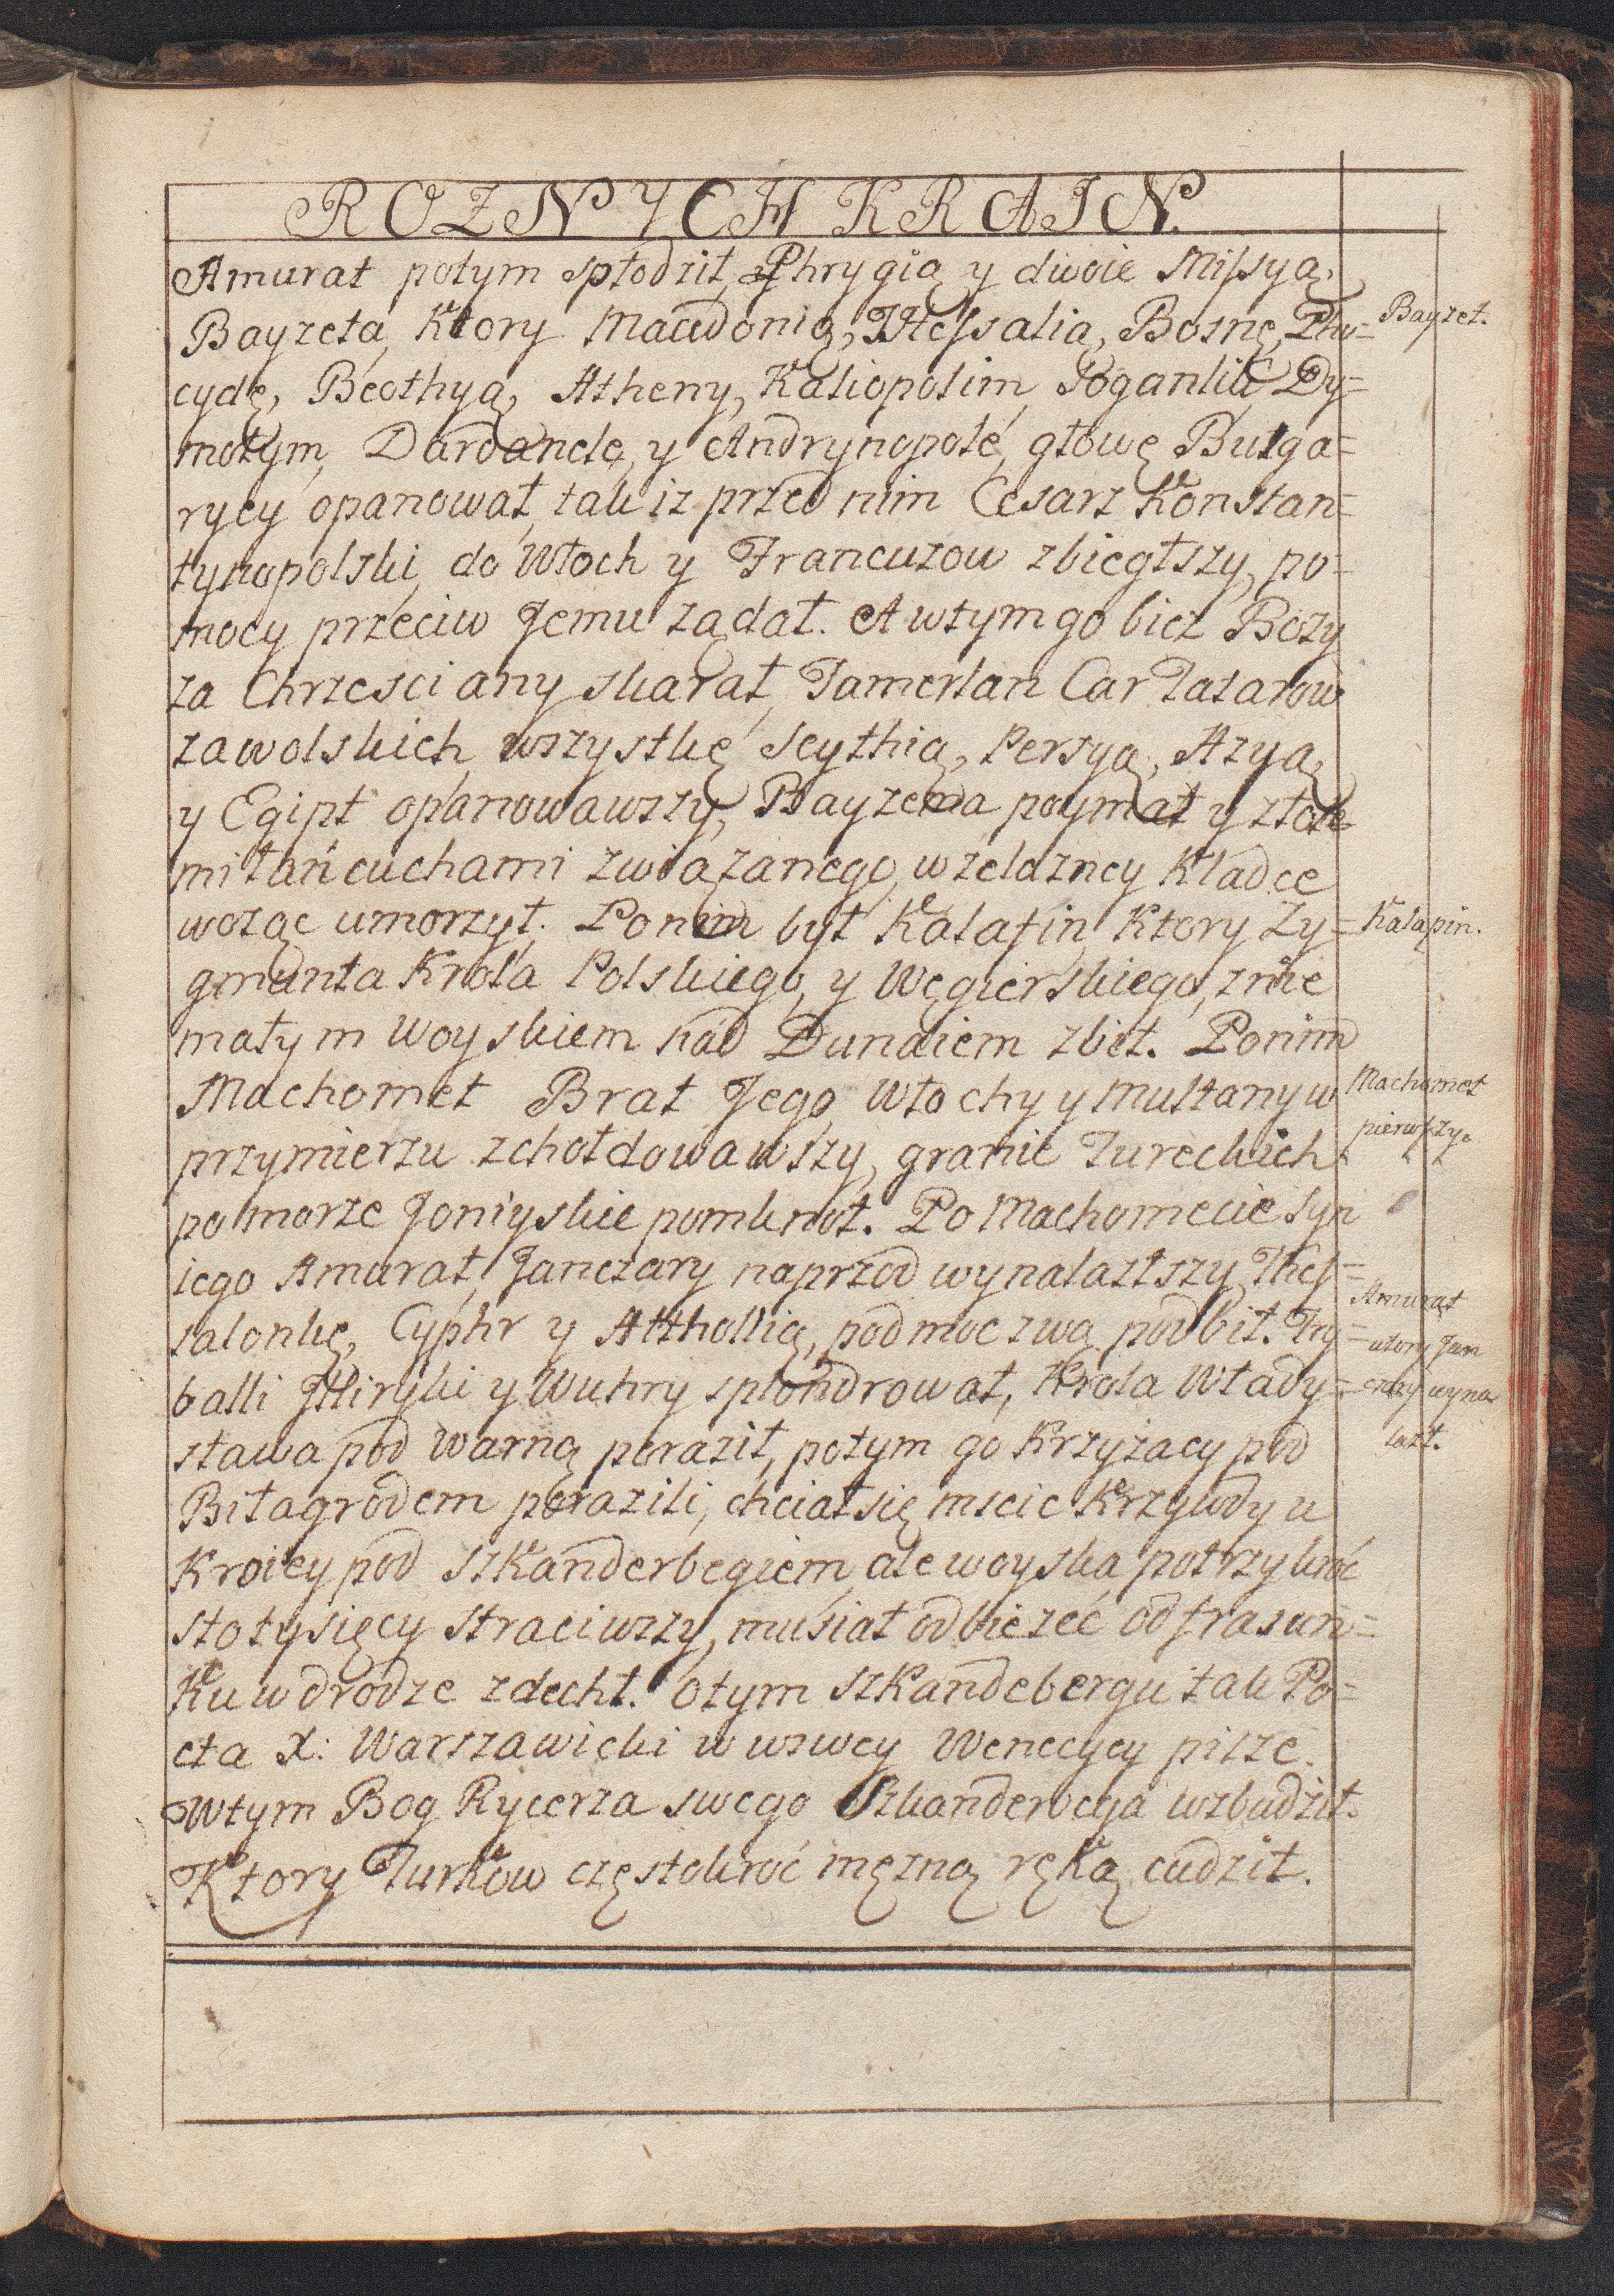 ROZNYCH KRAIN.
Amurat potym spłodzit, Phrygią y dwoie Missyą,
Bayzeta, Ktory Macedonią, Thessalią, Bosnę, Pho=
Bayzet.
cydę, Beothyą, Atheny, Kaliopolim, Joganlia Dy=
motym, Dardanelę, y Andrynopole, głowę Bulga=
ryey opanował, tak iz przed nim Cesarz Konstan=
tynopolski, do Włoch y Francuzow zbiegłszy, po=
mocy przeciw Jemu ządał. A wtym go bicz Bozy
za Chrzesciany skarał, Tamerlan Car Tatarow
zawolskich, wszystkę Scythią, Persyą, Azyą
y Egipt opanowawszy, Bayzeta poymał y złote
mi łańcuchami związanego, w zelazney Kladce
wożąc umorzył. Ponim był Kalapin, Ktory Zy=
Kalapin.
gmunta Krola Polskiego, y Węgierskiego, z nie
małym woyskiem nad Dunaiem zbił. Ponim
Machomet Brat Jego, Włochy y Multany w
Machomet
przymierzu zchołdowawszy, granic Tureckich
pierwszy.
po morze Joniyskie pomknoł. Po Machomecie Syn
iego Amurat, Janczary naprzod wynalazłszy, Thes=
salonkę, Cyphr y Atthollią, pod moc zwą podbił. Try=
Amurat
wtory Jan
balli Jlliryki y Wuhry splondrował, Krola Włady=
czary wyna
sława pod Warną poraził, potym go Krzyżacy pod
lazł.
Białagrodem porazili, chciał się mscic Krzywdy u
Kroiey pod szKanderbegiem, ale woyska potrzykroć
sto tysięcy straciwszy, musiał odbieżeć od frasun=
Ku w drodze zdechł. O tym szKandebergu tak Po=
eta X: Warszawicki w wswey Wenecyey pisze.
Wtym Bog Rycerza swego Szkanderbega wzbudził.
Ktory Turkow częstokroć mężną ręKą cudził.